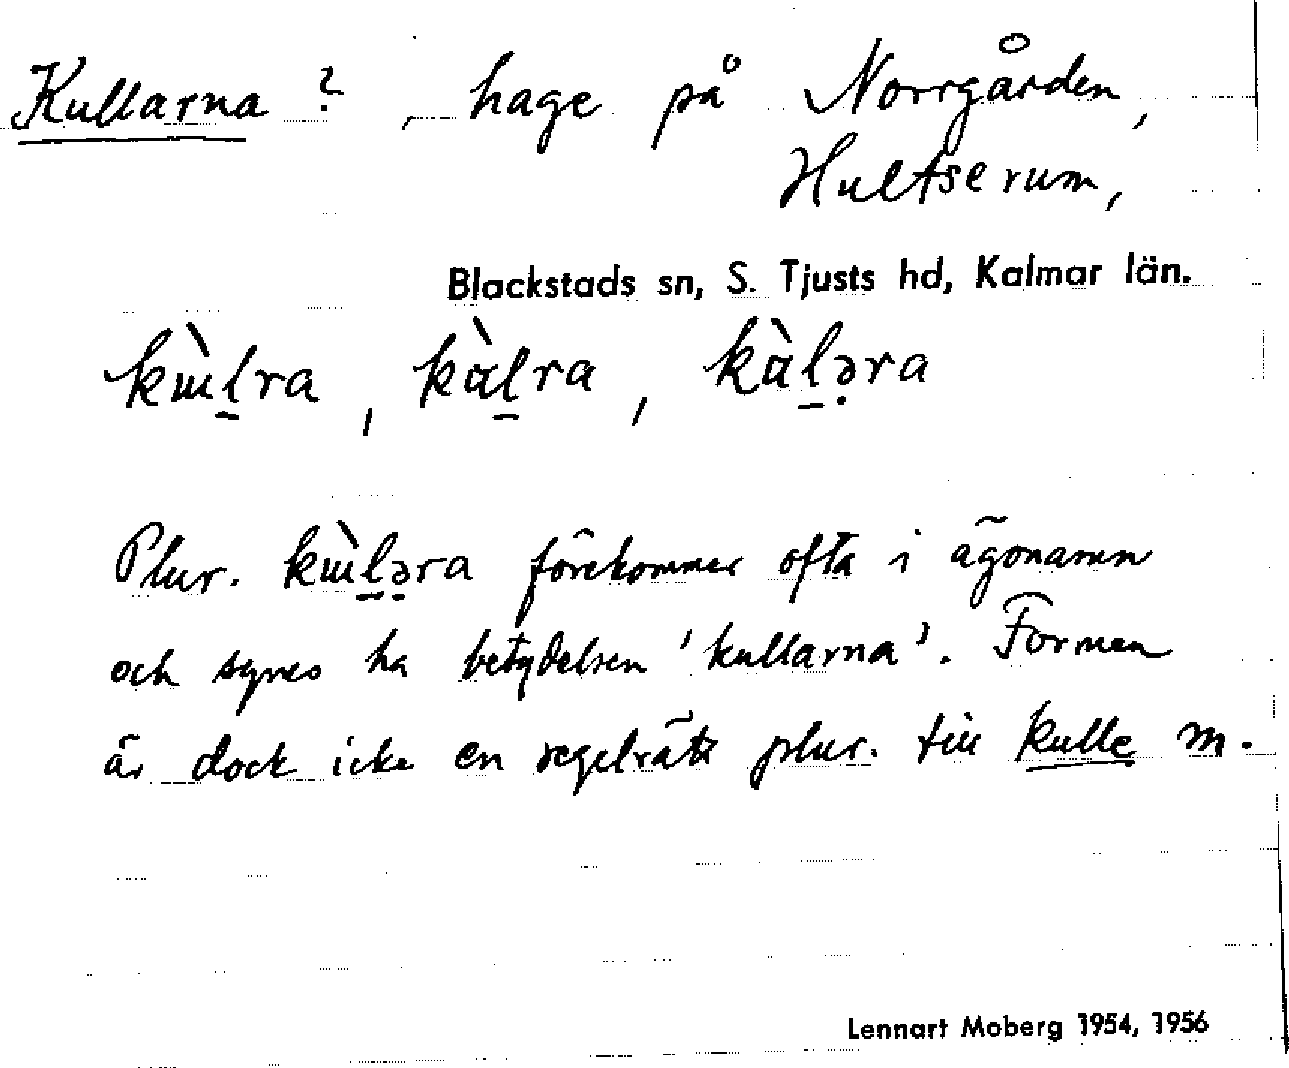 Kullarna ?, hage på Norrgården,
Hultserum,
Blackstads sn, S. Tjusts hd, Kalmar län.
kɯ̀l̠ra, kàl̠ra, kàl̠ə̣ra
Plur. kɯ̀l̠ə̣ra förekommer ofta i ägonamn
och synes ha betydelsen 'kullarna'. Formen
är dock icke en regelrätt plur. till kulle m.
Lennart Moberg 1954, 1956